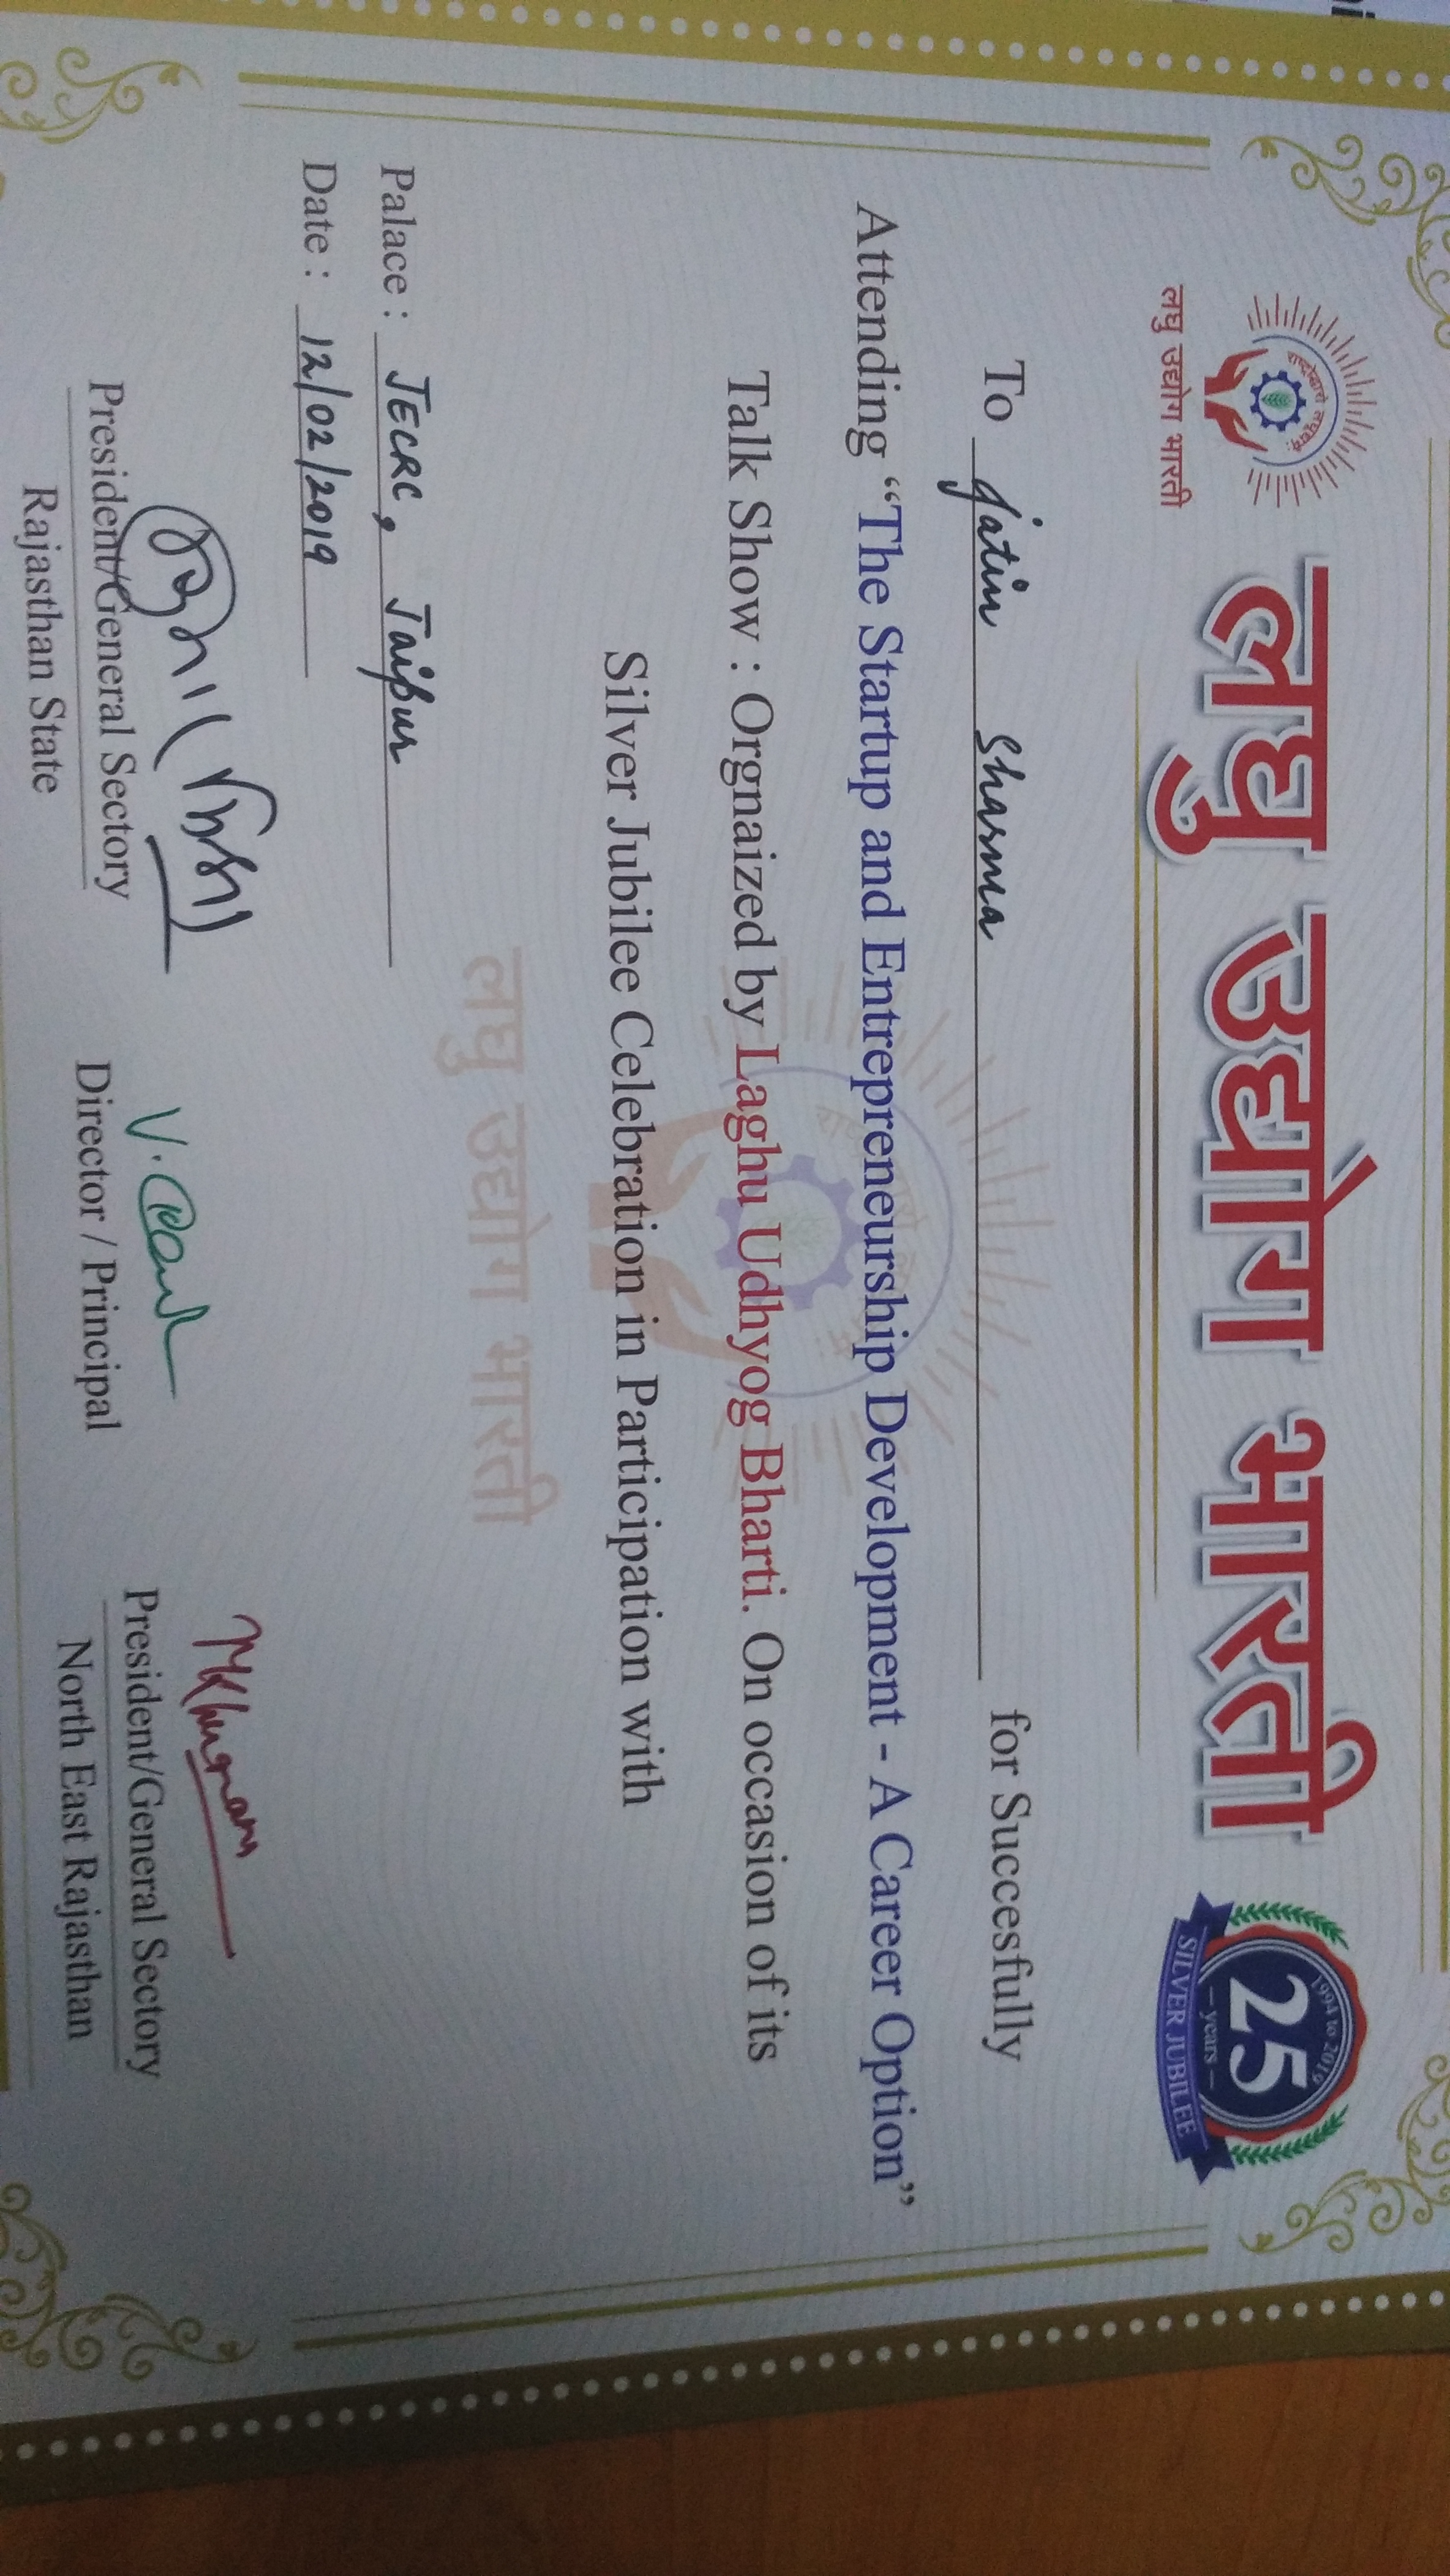 लघु उद्योग भारती
लघु उद्योग भारती
1994 to 2019
25
years
SILVER JUBILEE
To Jatin Sharma for Succesfully
Attending “The Startup and Entrepreneurship Development - A Career Option”
Talk Show : Orgnaized by Laghu Udhyog Bharti. On occasion of its
Silver Jubilee Celebration in Participation with
लघु उद्योग भारती
Palace : JECRC, Jaipur
Date : 12/02/2019
President/General Sectory
Rajasthan State
Director / Principal
President/General Sectory
North East Rajasthan